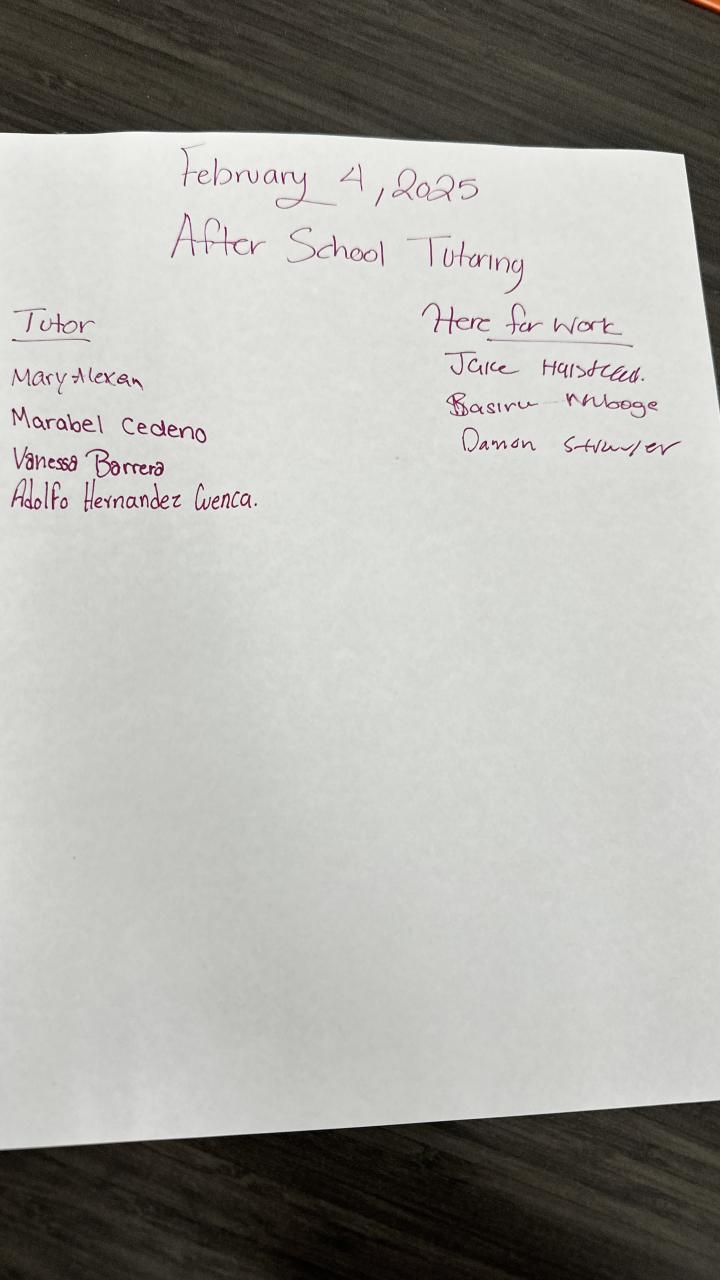 February 4, 2025
After School Tutoring
Tutor
Mary Alexan
Marabel Cedeno
Vanessa Barrera
Adolfo Hernandez Cuenca.
Here for Work
Jake Halstead.
Basiru
Damon